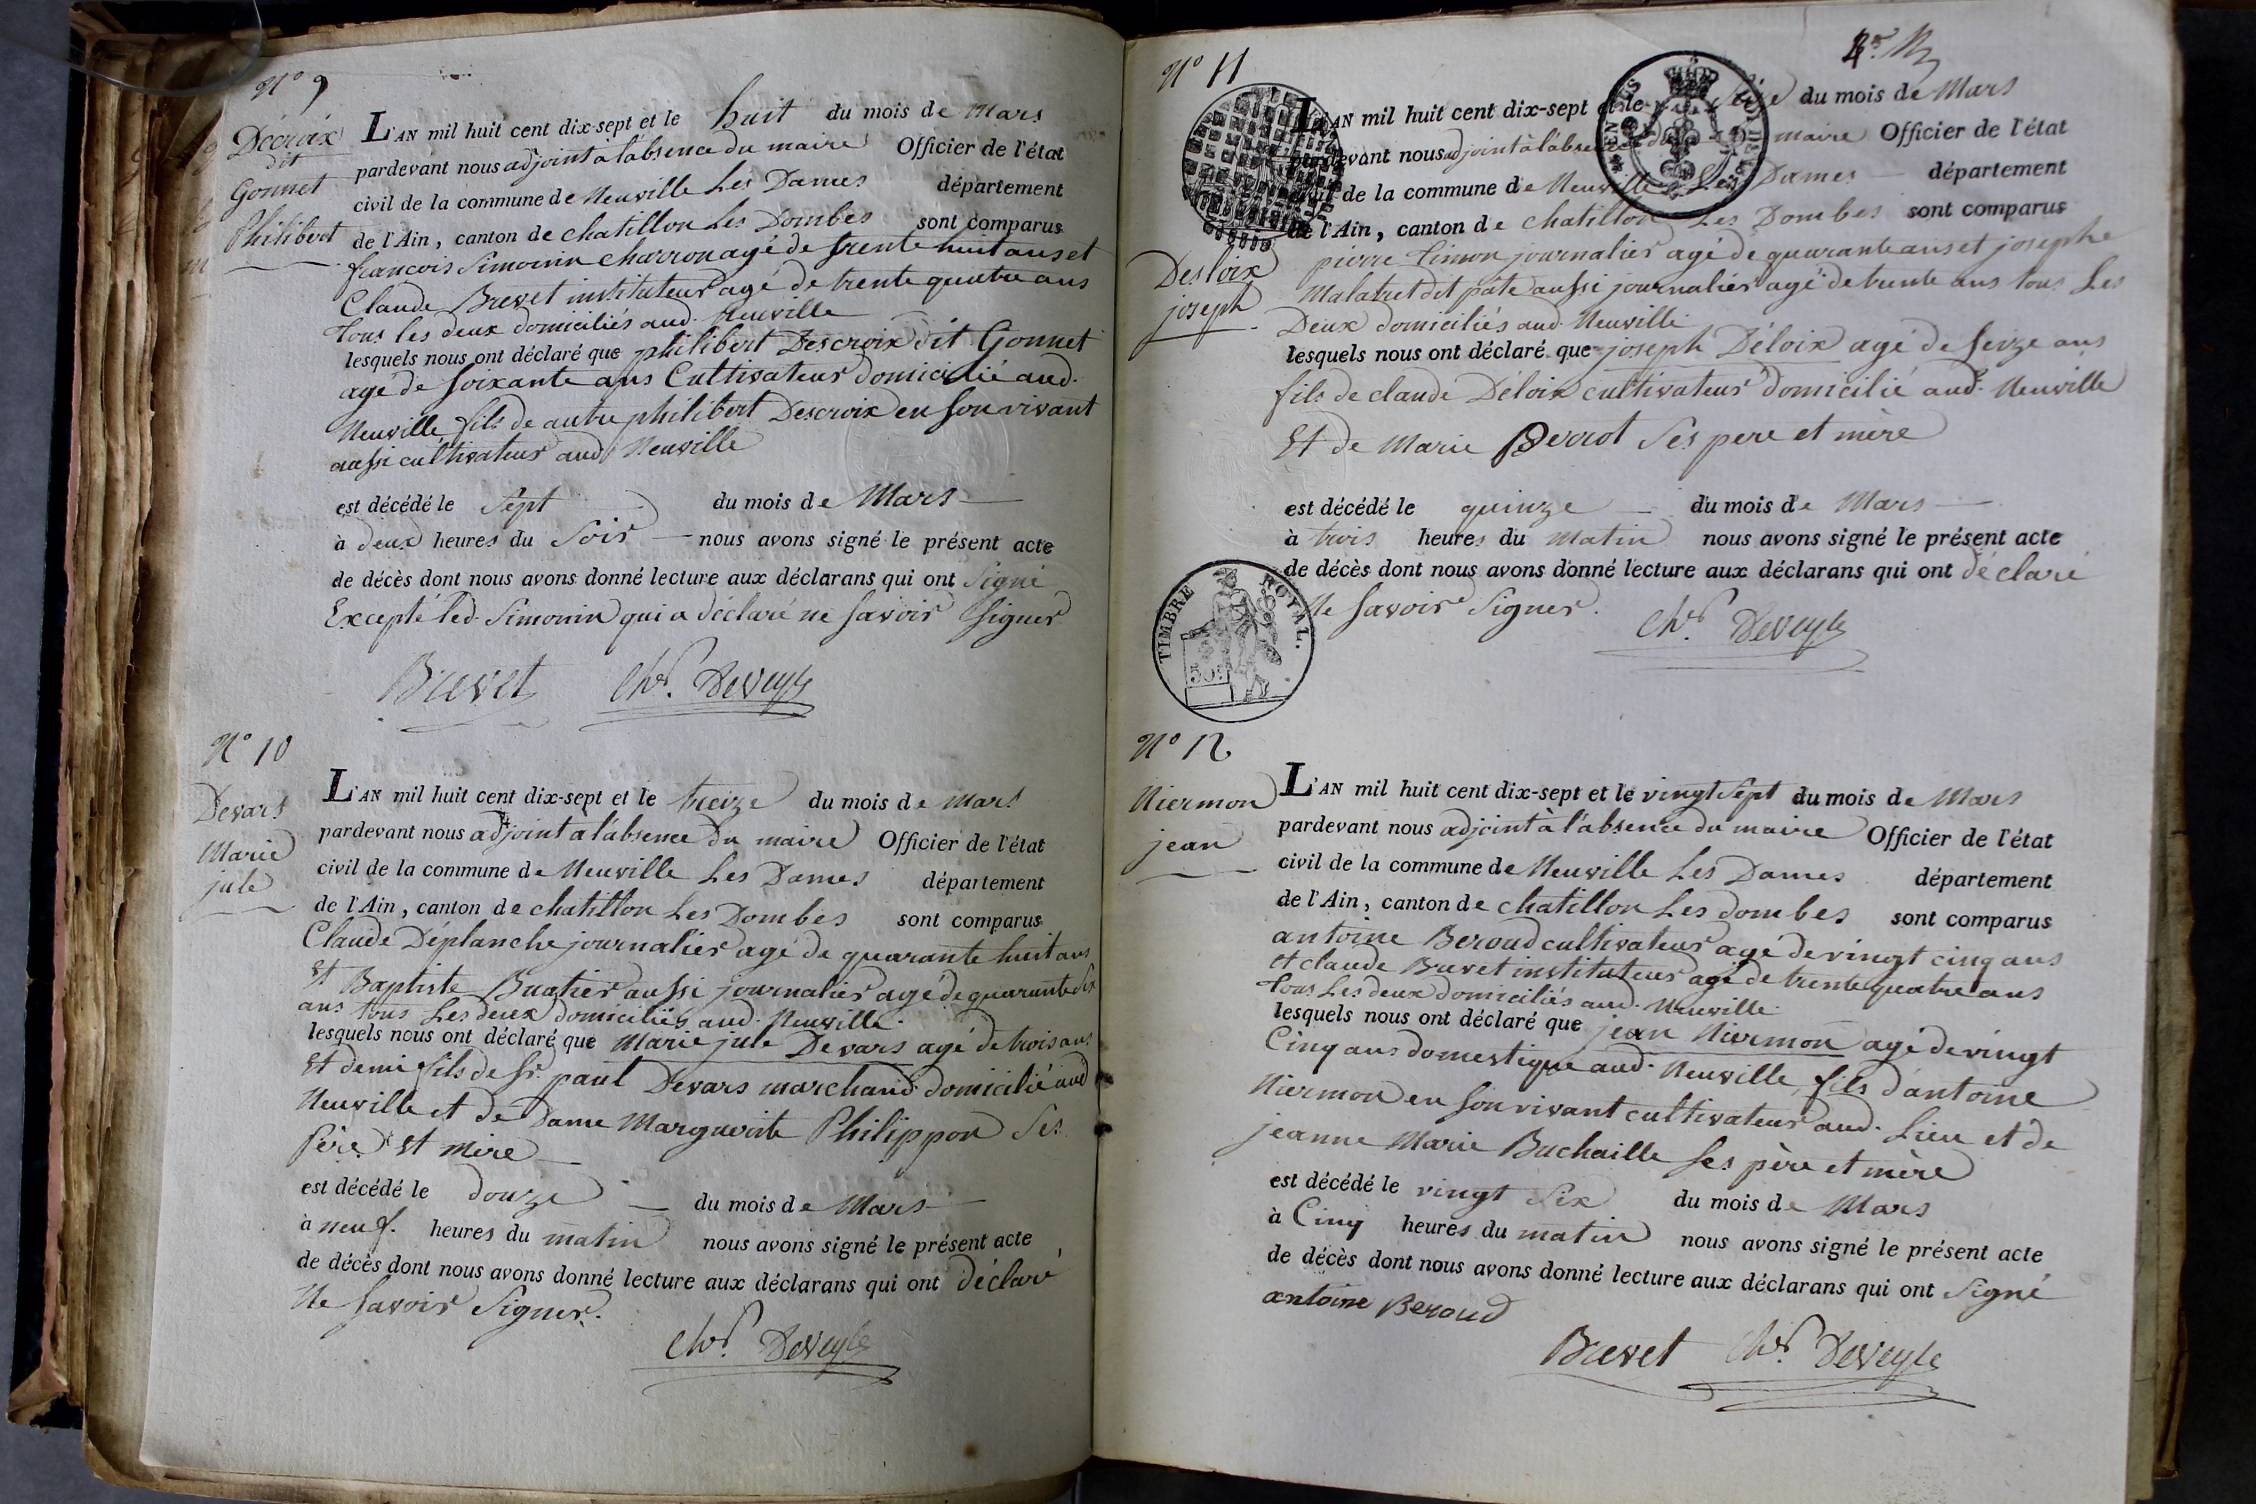 N° 9
Décroix
dit
Gonnet
Philibert
L'AN mil huit cent dix-sept et le huit du mois de Mars
pardevant nous adjoint à l'absence du maire Officier de l'état
civil de la commune de Neuville Les Dames département
de l'Ain, canton de chatillon Les Dombes sont comparus
francois Simonin charron agé de trente huit ans et
Claude Brevet instituteur agé de trente quatre ans
tous les deux domiciliés aud. Neuville
lesquels nous ont déclaré que philibert Descroix dit Gonnet
agé de soixante ans Cultivateur domicilié aud.
Neuville fils de autre philibert Descroix en son vivant
aussi cultivateur aud Neuville
est décédé le sept du mois de Mars
à deux heures du soir nous avons signé le présent acte
de décès dont nous avons donné lecture aux déclarans qui ont signé
Excepté led. Simonin qui a déclaré ne savoir signer
Brevet Chr. Deveyle
N° 10
Devars
Marie
jule
L'AN mil huit cent dix-sept et le treize du mois de Mars
pardevant nous adjoint à l'absence du maire Officier de l'état
civil de la commune de Neuville Les Dames département
de l'Ain, canton de chatillon Les Dombes sont comparus
Claude Déplanche journalier agé de quarante huit ans
Et Baptiste Buatier aussi journalier agé de quarante six
ans tous Les deux domiciliés aud. Neuville.
lesquels nous ont déclaré que Marie jule Devars agé de trois ans
Et demi fils de Sr. paul Devars marchand domicilié aud
Neuville et de Dame Marguerite Philippon Ses
Père et Mère
est décédé le douze du mois de Mars
à neuf. heures du matin nous avons signé le présent acte
de décès dont nous avons donné lecture aux déclarans qui ont déclaré
Ne savoir signer.
Chr. Deveyle
N° 11
Desloix
joseph
L'AN mil huit cent dix-sept et le seize du mois de Mars
pardevant nous adjoint à l'absence du maire Officier de l'état
civil de la commune de Neuville Les Dames département
de l'Ain, canton de chatillon Les Dombes sont comparus
pierre Simon journalier agé de quarante ans et josephe
Malatret dit pate aussi journalier agé de trente ans tous Les
Deux domiciliés aud. Neuville
lesquels nous ont déclaré que joseph Déloix agé de seize ans
fils de claude Déloix cultivateur domicilié aud. Neuville
Et de Marie Perrot Ses pere et mère
est décédé le quinze du mois de Mars
à trois heures du Matin nous avons signé le présent acte
de décès dont nous avons donné lecture aux déclarans qui ont déclaré
Ne savoir signer.
TIMBRE ROYAL.
50c
Chr. Deveyle
N° 12
Niermon
jean
L'AN mil huit cent dix-sept et le vingt sept du mois de Mars
pardevant nous adjoint à l'absence du maire Officier de l'état
civil de la commune de Neuville Les Dames département
de l'Ain, canton de chatillon Les dombes sont comparus
antoine Beroud cultivateur agé de vingt cinq ans
et claude Brevet instituteur agé de trente quatre ans
tous Les deux domiciliés aud. Neuville
lesquels nous ont déclaré que jean Niermon agé de vingt
Cinq ans domestique aud. Neuville, fils d'antoine
Niermon en son vivant cultivateur aud. Lieu et de
jeanne Marie Buchaille ses père et mère
est décédé le vingt six du mois de Mars
à Cinq heures du matin nous avons signé le présent acte
de décès dont nous avons donné lecture aux déclarans qui ont signé
antoine Beroud
Brevet Chr. Deveyle